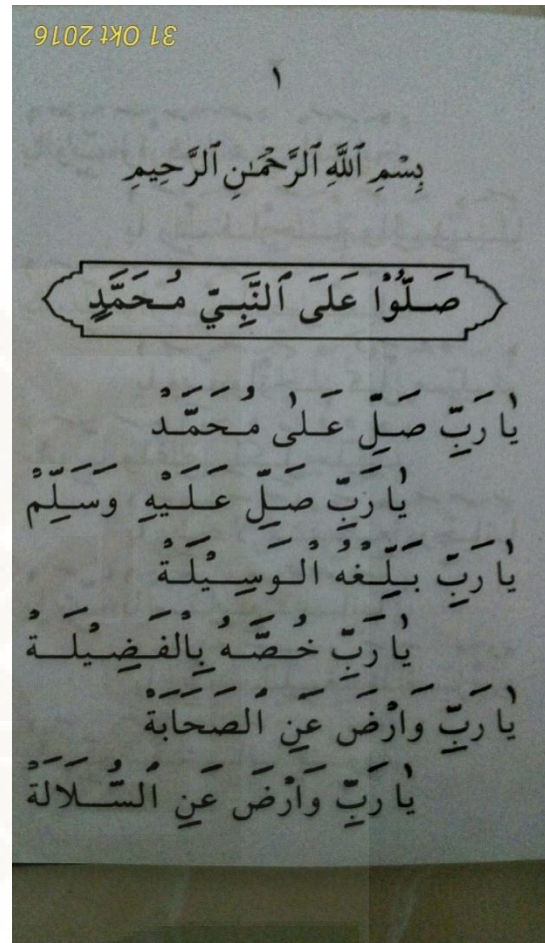 31 Okt 2016
١
بِسْمِ ٱللَّهِ ٱلرَّحْمَـٰنِ ٱلرَّحِيمِ
صَلُّوْا عَلَى ٱلنَّبِيِّ مُحَمَّدٍ
يٰا رَبِّ صَلِّ عَلٰى مُحَمَّدْ
يٰا رَبِّ صَلِّ عَلَيْهِ وَسَلِّمْ
يٰا رَبِّ بَلِّغْهُ الْوَسِيْلَةْ
يٰا رَبِّ خُصَّهُ بِالْفَضِيْلَةْ
يٰا رَبِّ وَارْضَ عَنِ الصَّحَابَةْ
يٰا رَبِّ وَارْضَ عَنِ السُّلَالَةْ